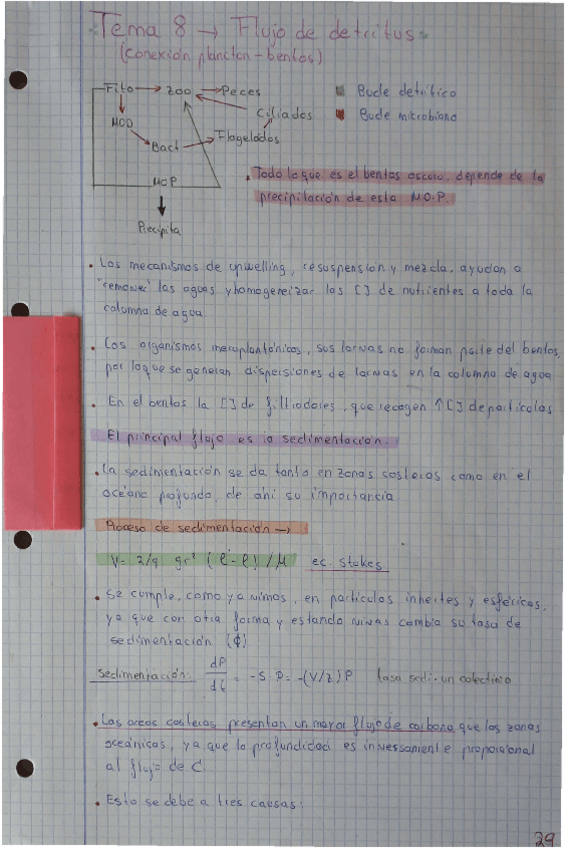 Tema 8 → Flujo de detritus
(conexión plancton-bentos)
Fito → zoo → Peces
Bucle detrítico
Ciliados
Bucle microbiano
MOD
Flagelados
Bact
MOP
Precipita
• Todo lo que es el bentos oscuro, depende de la
precipitación de esta M.O.P.
• Los mecanismos de upwelling, resuspensión y mezcla, ayudan a
"remover" las aguas y homogeneizar las [] de nutrientes a toda la
columna de agua
• Los organismos meroplantónicos, sus larvas no forman parte del bentos,
por lo que se generan dispersiones de larvas en la columna de agua
• En el bentos la [] de filtradores, que recogen ↑[] de partículas
El principal flujo es la sedimentación.
• La sedimentación se da tanto en zonas costeras como en el
océano profundo, de ahí su importancia
Proceso de sedimentación →
V = 2/9 gr² (ρ'-ρ) / μ ec. stokes
• Se cumple, como ya vimos, en partículas inhertes y esféricas,
ya que con otra forma y estando vivas cambia su tasa de
sedimentación (ϕ)
sedimentación: dP/dt = -S·P = -(V/z)P tasa sedi. un colectivo
• Las areas costeras presentan un mayor flujo de carbono que las zonas
oceánicas, ya que la profundidad es inversamente proporcional
al flujo de C.
• Esto se debe a tres causas:
29